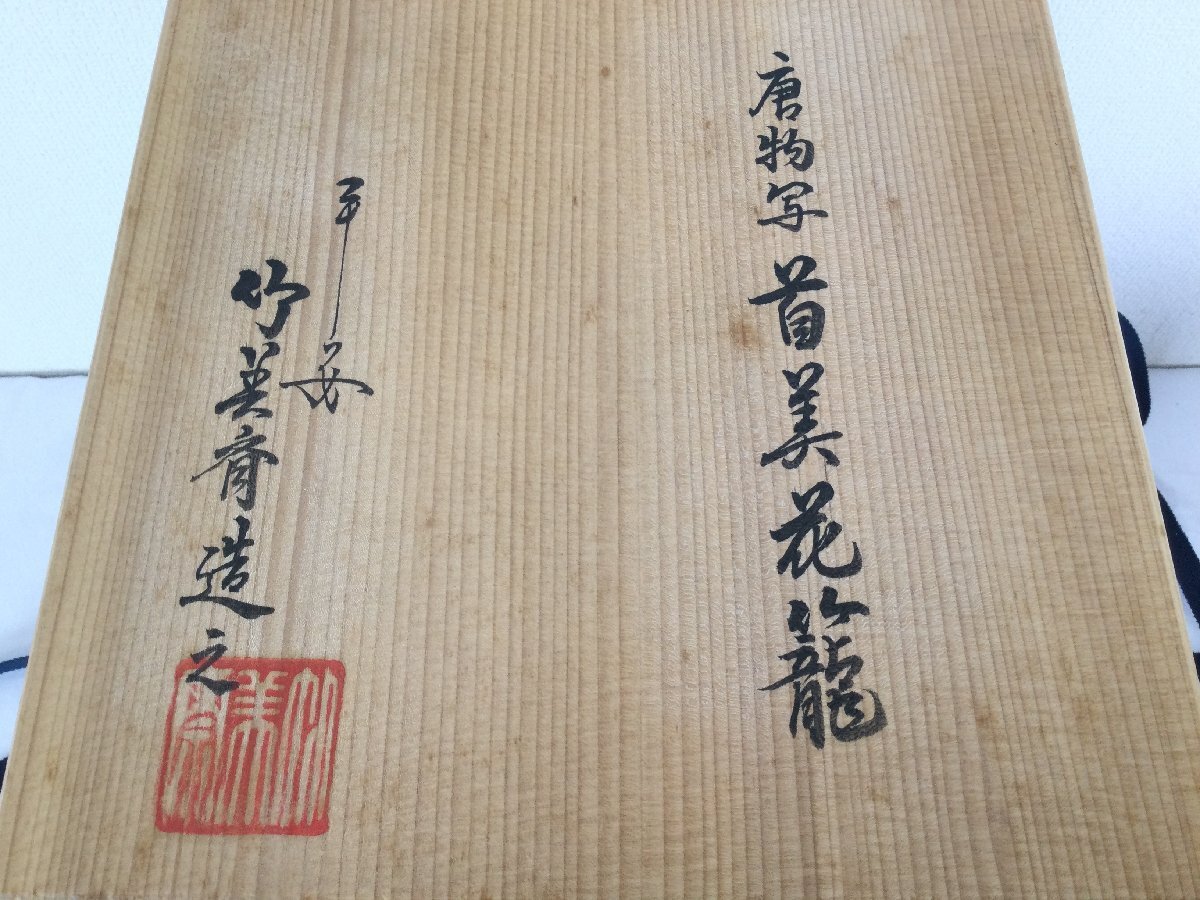 唐物写 首美花籠
平安
竹美斎造之
竹美斎